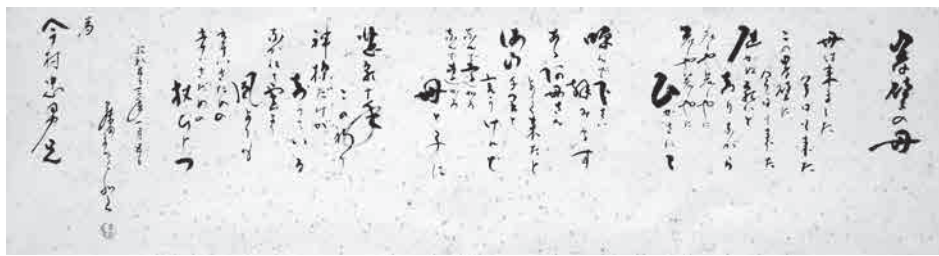 岸壁の母
母は来ました
今日も来た
この岸壁に
今日も来た
届かぬ願いと
知りながら
もしやもしやに
もしやもしやに
ひかされて
呼んで下さい 拝みます
あゝおっ母さん
よく来たと
海山千里と
言うけれど
なんで遠かろ
なんで遠かろ
母と子に
悲願十年
この祈り
神様だけが
知っている
流れる雲より
風よりも
つらいさだめの
つらいさだめの
杖ひとつ
為
今村忠男兄